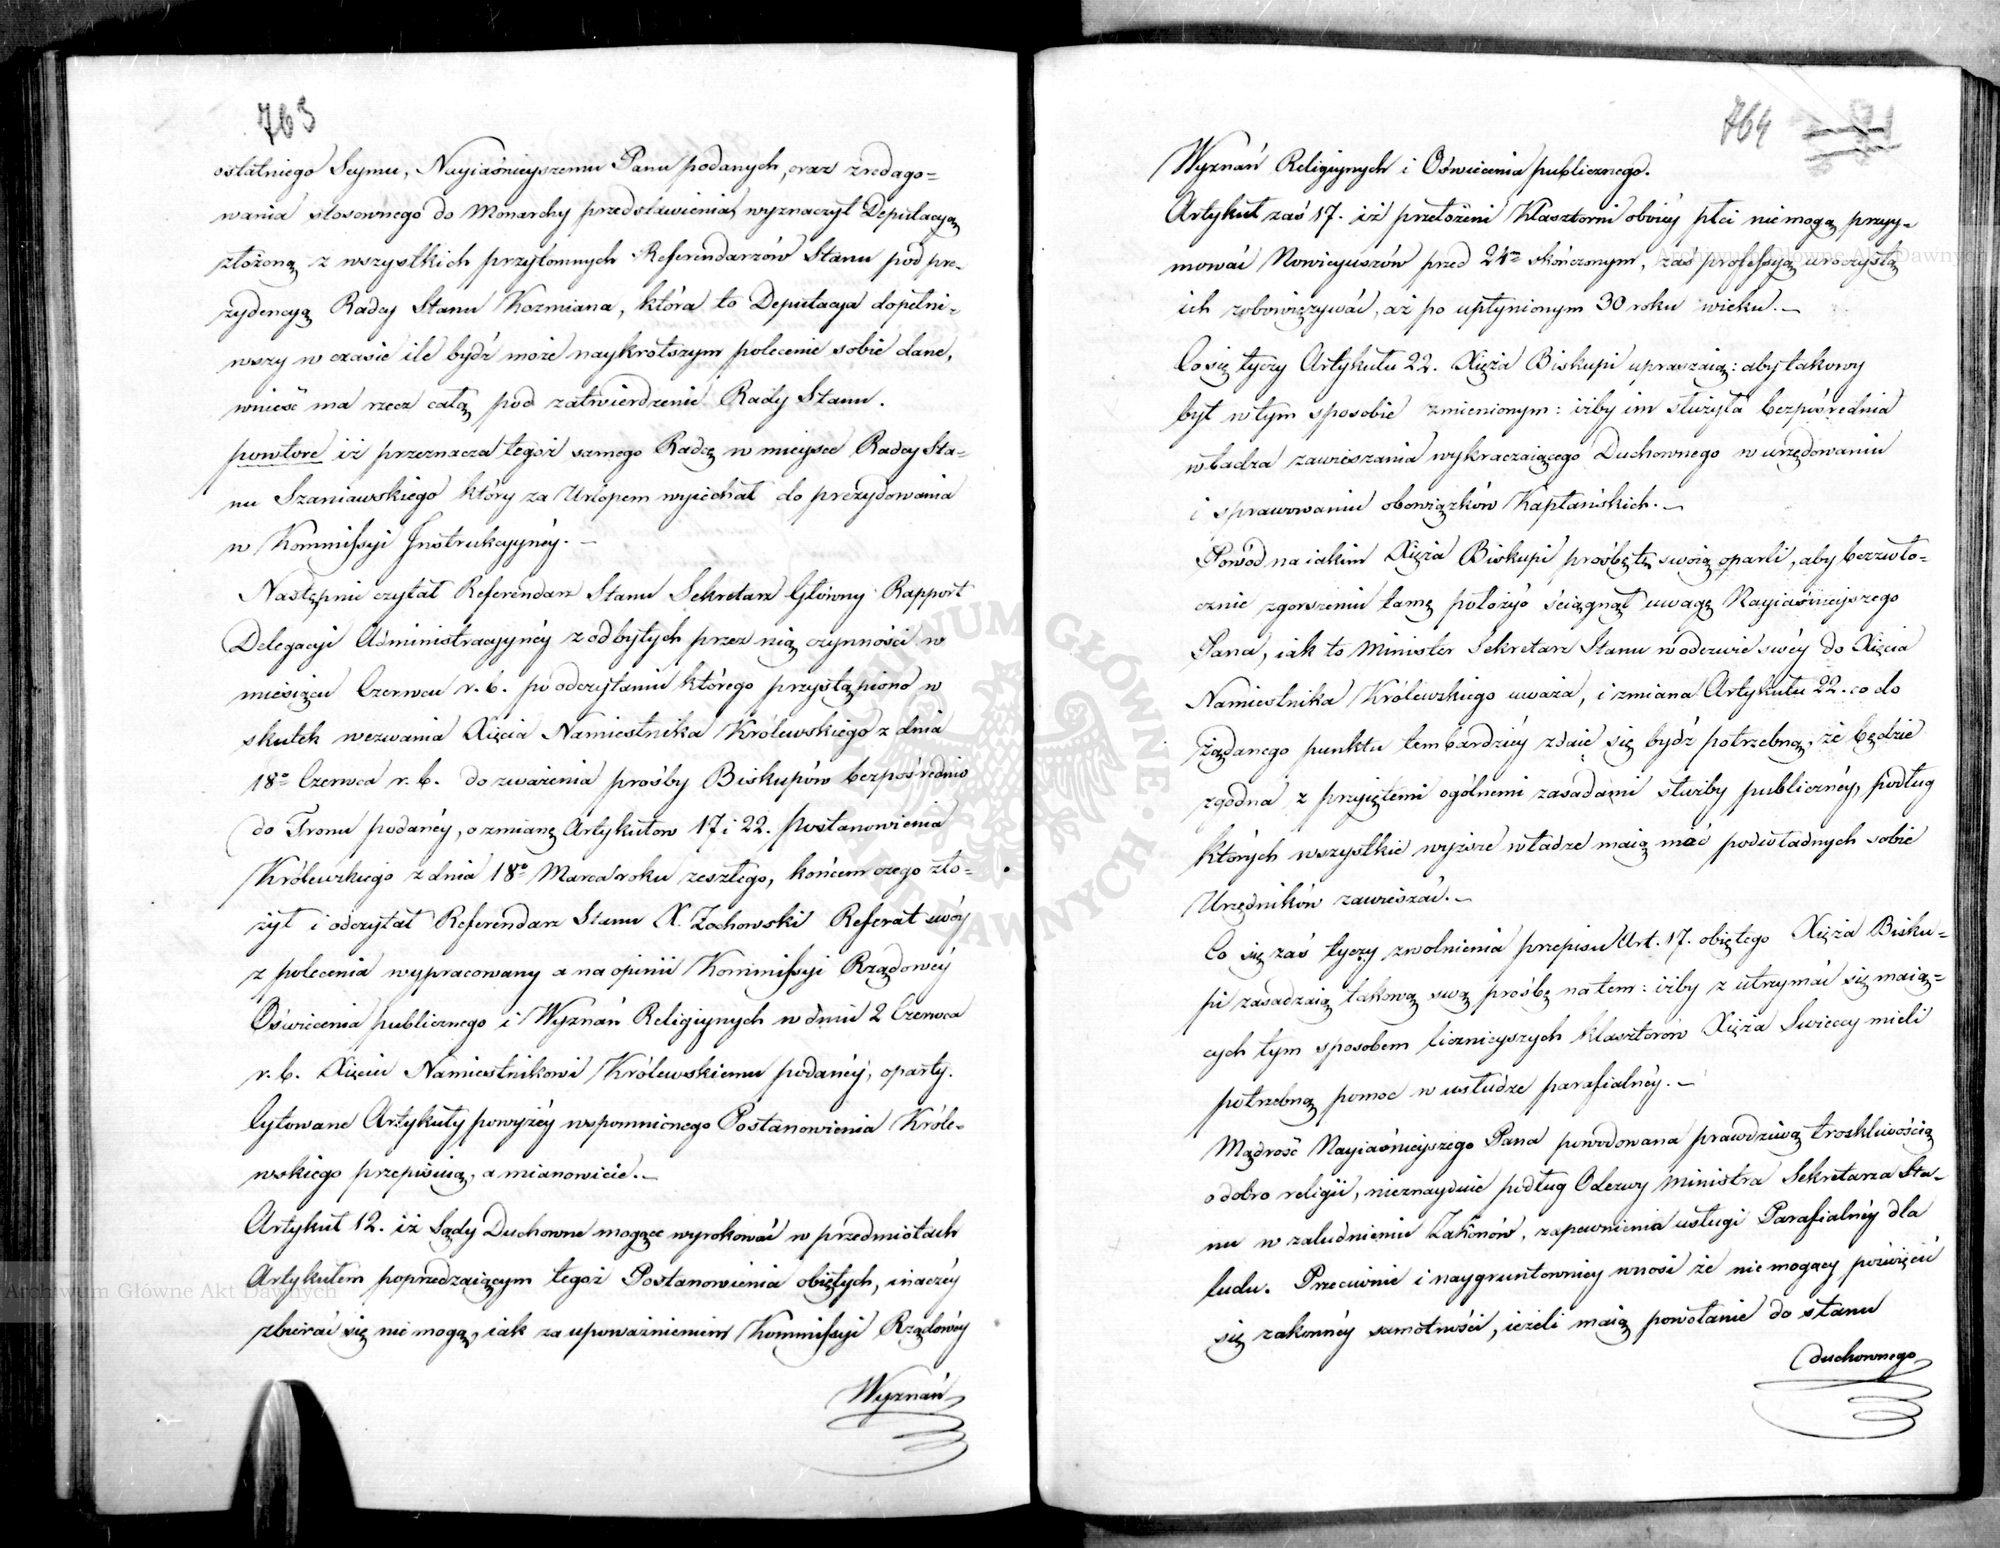 763
ostatniego Seymu, Nayiaśnieyszemu Panu podanych, oraz zredago=
wania stosownego do Monarchy przedstawienia, wyznaczył Deputacyą
złożoną z wszystkich przytomnych Referendarzów Stanu pod pre=
zydencyą Radcy Stanu Kozmiana, która to Deputacya dopełni=
wszy w czasie ile bydź może naykrótszym polecenie sobie dane,
wnieść ma rzecz całą pod zatwierdzenie Rady Stanu.
powtóre iż przeznacza tegoż samego Radcę w mieysce Radcy Sta=
nu Szaniawskiego który za Urlopem wyiechał do prezydowania
w Kommissyi Instrukcyynéy. —
Następnie czytał Referendarz Stanu Sekretarz Główny Rapport
Delegacyi Administracyynéy z odbytych przez nią czynności w
miesiącu Czerwcu r. b. po odczytaniu którego przystąpiono w
skutek wezwania Xięcia Namiestnika Królewskiego z dnia
18º Czerwca r. b. do zważenia prośby Biskupów bezpośrednio
do Tronu podanéy, o zmianę Artykułów 17 i 22. Postanowienia
Królewskiego z dnia 18º Marca roku zeszłego, końcem czego zło=
żył i odczytał Referendarz Stanu X. Zochowski Referat swóy
z polecenia wypracowany a na opinii Kommissyi Rządowéy
Oświecenia publicznego i Wyznań Religiynych w dniu 2 Czerwca
r. b. Xięciu Namiestnikowi Królewskiemu podanéy, oparty.
Cytowane Artykuły powyżéy wspomnionego Postanowienia Króle=
wskiego przepisuią, a mianowicie. —
Artykuł 12. iż Sądy Duchowne mogące wyrokować w przedmiotach
Artykułem poprzedzaiącym tegoż Postanowienia obiętych, inaczéy
zbierać się nie mogą, iak za upoważnieniem Kommissyi Rządowéy
Wyznań
764
Wyznań Religiynych i Oświecenia publicznego.
Artykuł zaś 17. iż przełożeni Klasztorni oboiéy płci nie mogą przyy=
mować Nowicyuszów przed 24m skończonym, zaś professyą uroczystą
ich zobowiązywać, aż po upłynionym 30 roku wieku. —
Co się tyczy Artykułu 22. Xięża Biskupi upraszaią: aby takowy
był w tym sposobie zmienionym: iżby im służyła bezpośrednia
władza zawieszania wykraczaiącego Duchownego w urzędowaniu
i sprawowaniu obowiązków Kapłańskich. —
Powód na iakim Xięża Biskupi prośbę tę swoią oparli, aby bezzwło=
cznie zgorszeniu tamę położyć ściągnął uwagę Nayiaśnieyszego
Pana, iak to Minister Sekretarz Stanu w odezwie swéy do Xięcia
Namiestnika Królewskiego uważa, i zmiana Artykułu 22. co do
żądanego punktu tembardziéy zdaie się bydź potrzebną, że będzie
zgodna z przyiętemi ogólnemi zasadami służby publicznéy, podług
których wszystkie wyższe władze maią moc podwładnych sobie
Urzędników zawieszać. —
Co się zaś tyczy zwolnienia przepisu Art. 17. obiętego Xięża Bisku=
pi zasadzaią takową swą prośbę na tem: iżby z utrzymać się maią=
cych tym sposobem licznieyszych klasztorów Xięża Swieccy mieli
potrzebną pomoc w usłudze parafialnéy. —
Mądrość Nayiaśnieyszego Pana powodowana prawdziwą troskliwością
o dobro religii, nieznayduie podług Odezwy Ministra Sekretarza Sta=
nu w zaludnieniu Zakonów, zapewnienia usługi Parafialnéy dla
ludu. Przeciwnie i naygruntowniéy wnosi że nie mogący poświęcić
się zakonnéy samotności, ieżeli maią powołanie do stanu
duchownego
Archiwum Główne Akt Dawnych
Archiwum Główne Akt Dawnych
ARCHIWUM GŁÓWNE AKT DAWNYCH